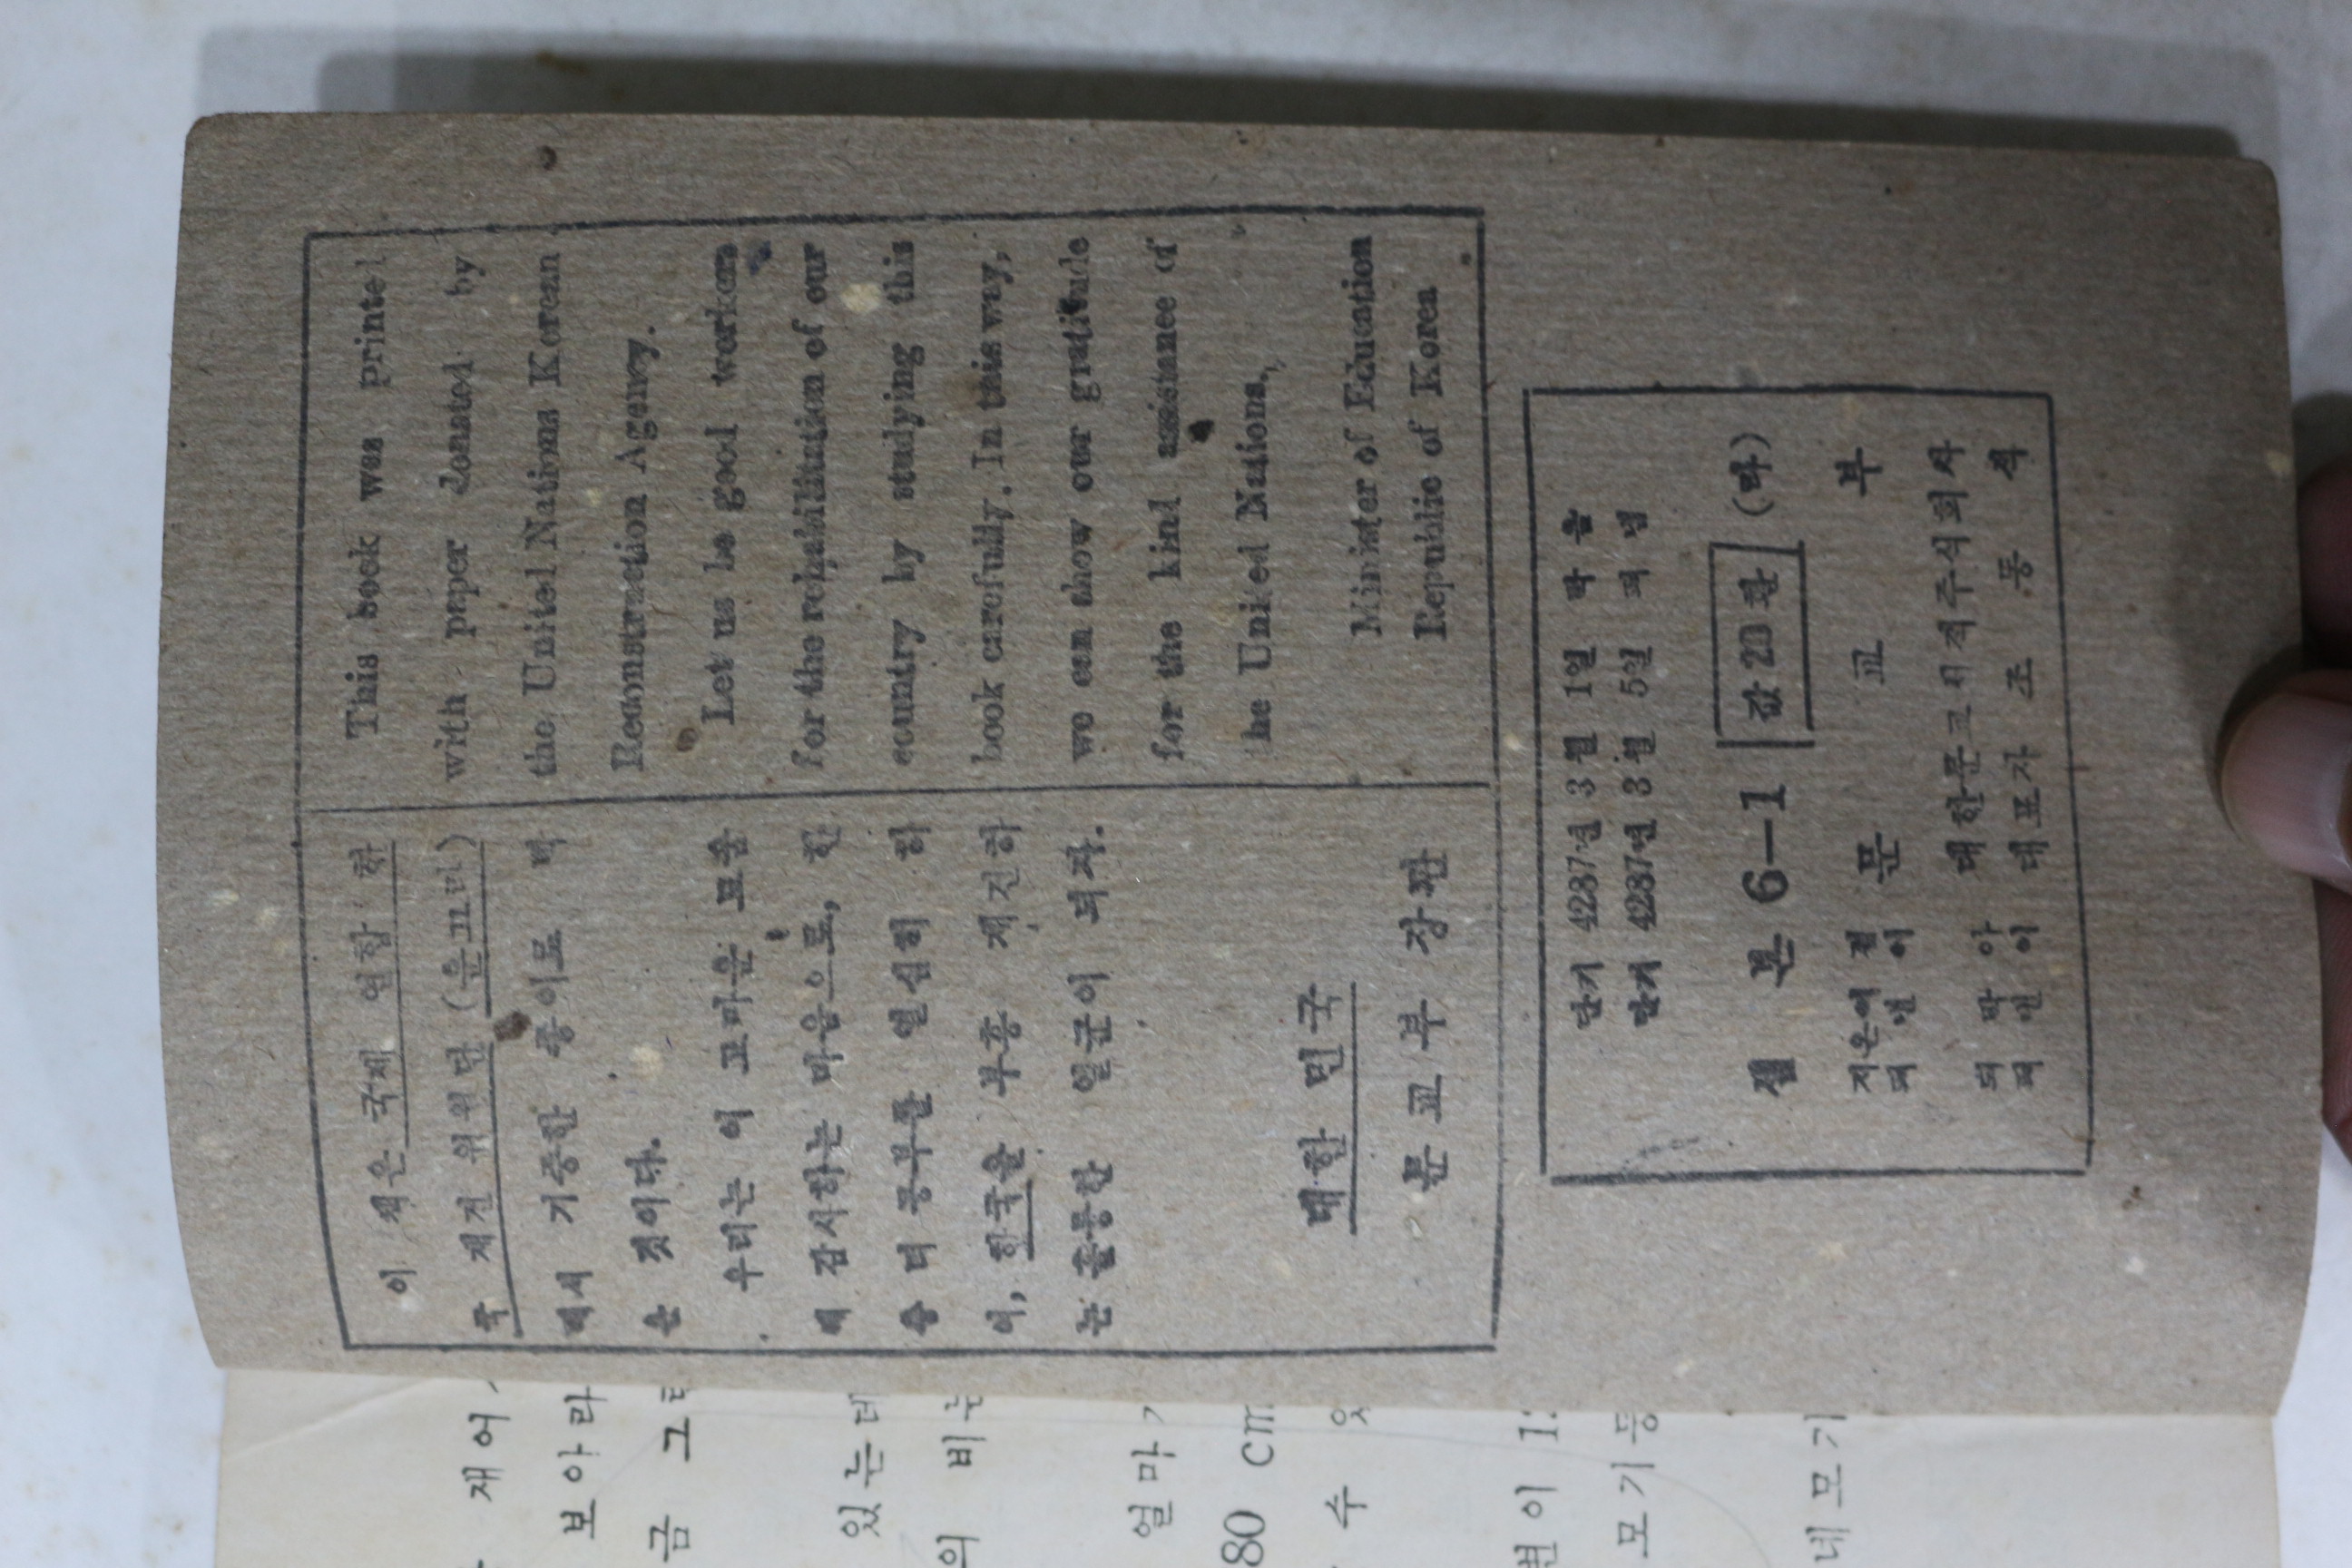 이 책은 국제 연합 한
국 재건 위원단 (운끄라)
에서 기증한 종이로 박
은 것이다.
우리는 이 고마운 도움
에 감사하는 마음으로, 한
층 더 공부를 열심히 하
여, 한국을 부흥 재건하
는 훌륭한 일군이 되자.
대한 민국
문교부 장관
This book was printed
with paper donated by
the United Nations Korean
Reconstruction Agency.
Let us be good workers
for the rehabilitation of our
country by studying this
book carefully. In this way,
we can show our gratitude
for the kind assistance of
he United Nations.
Minister of Education
Republic of Korea
단기 4287년 3월 1일 박음
단기 4287년 3월 5일 펴냄
셈본 6-1 값 환
지은이 겸 펴낸이 문교부
되박아 대한문교서적주식회사
펴낸이 대표자 조동식
재어
보아라
금 그
있는데
의 비는
얼마
80 cm
수 있
변이 1
모기둥
네모기